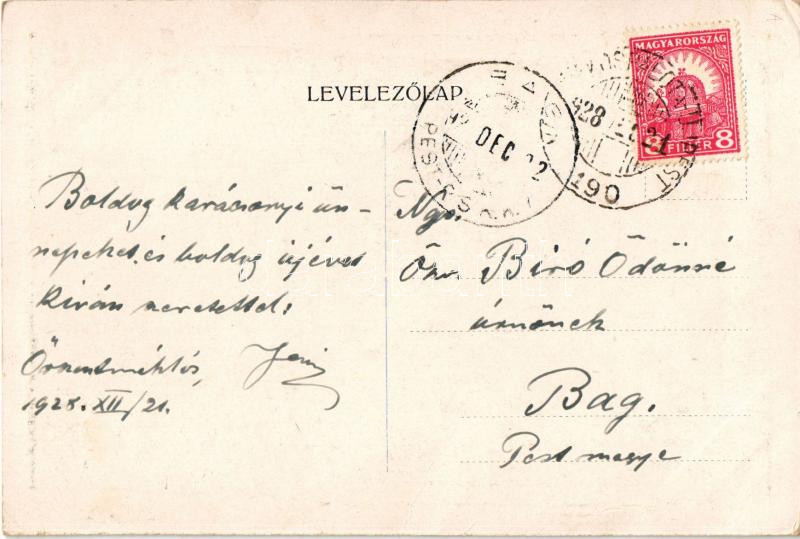 LEVELEZŐLAP
MAGYARORSZÁG
8 FILLÉR 8
BAG
DEC 22
928
190
Boldog karácsonyi ün-
nepeket és boldog újévet
kíván szeretettel:
Jenő
1928. XII/21.
Ngs.
Özv. Biró Ödönné
úrnőnek
Bag.
Pest megye